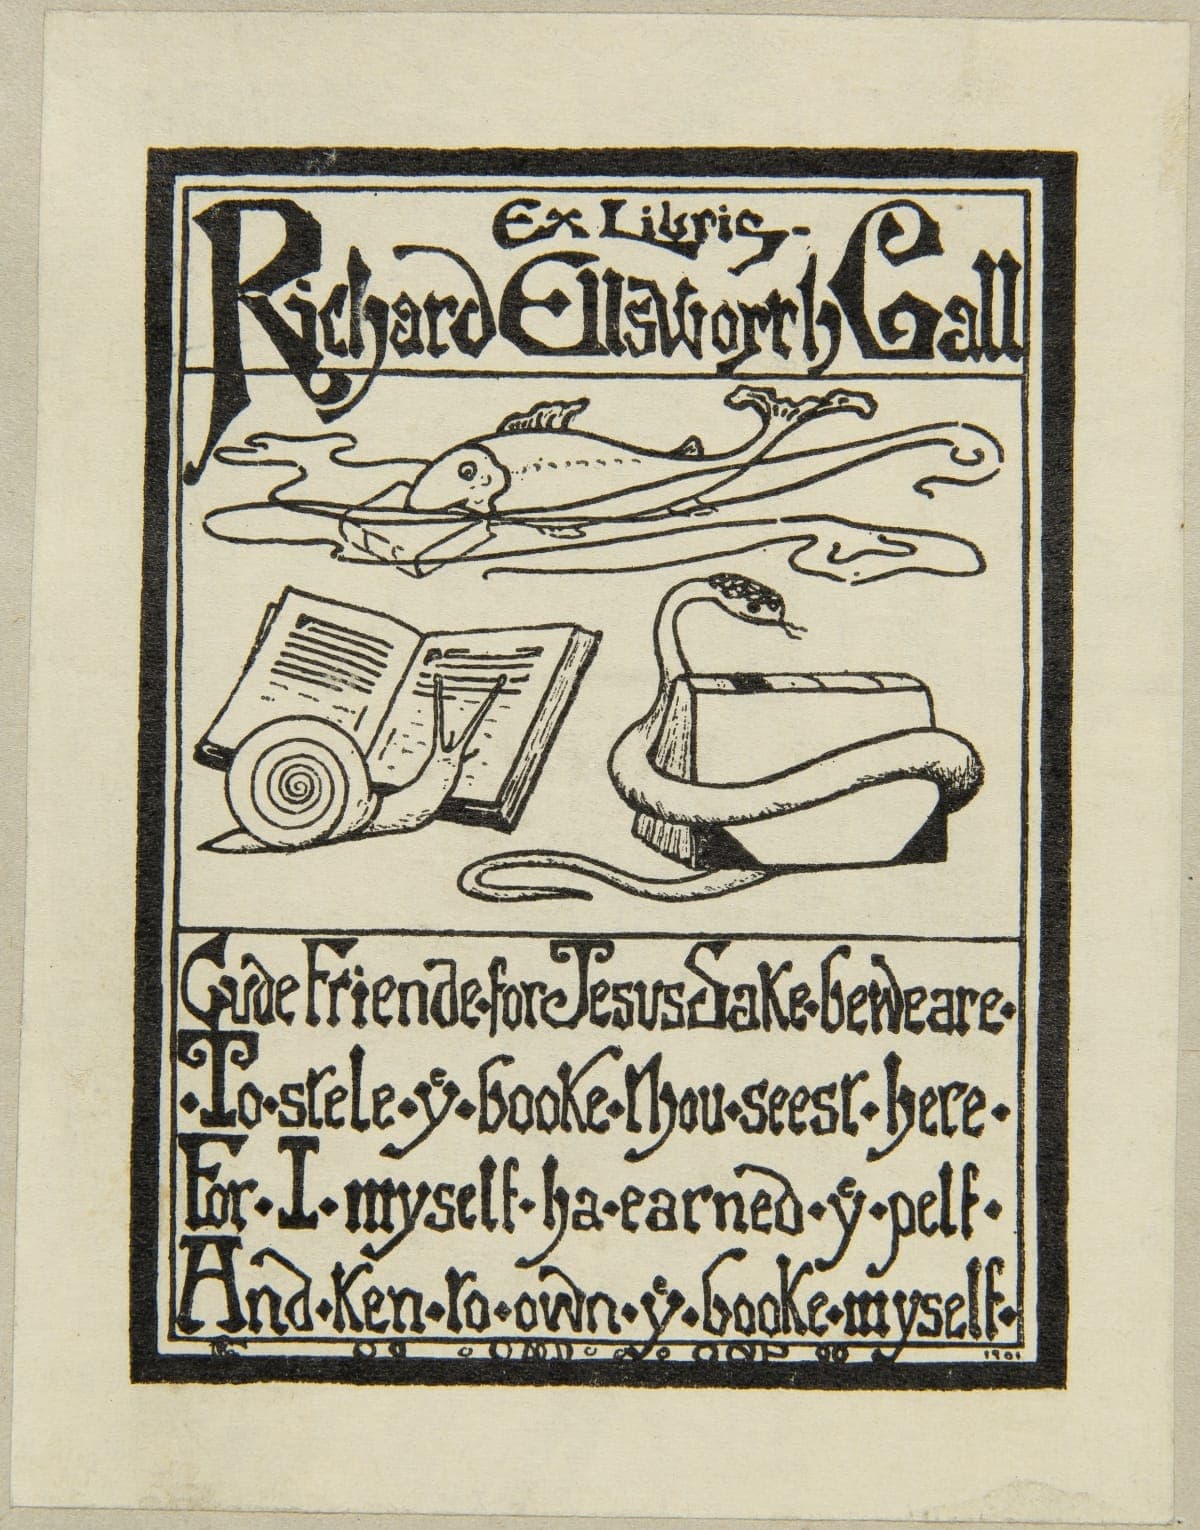 Ex Libris-
Richard Ellsworth Gall
Gude Friende·for Jesus Sake·beweare·
·To·stele·yͤ·booke·thou·seest·here·
For·I·myself·ha·earned·yͤ·pelf·
And·Ken·to·own·yͤ·booke·myself·
1901